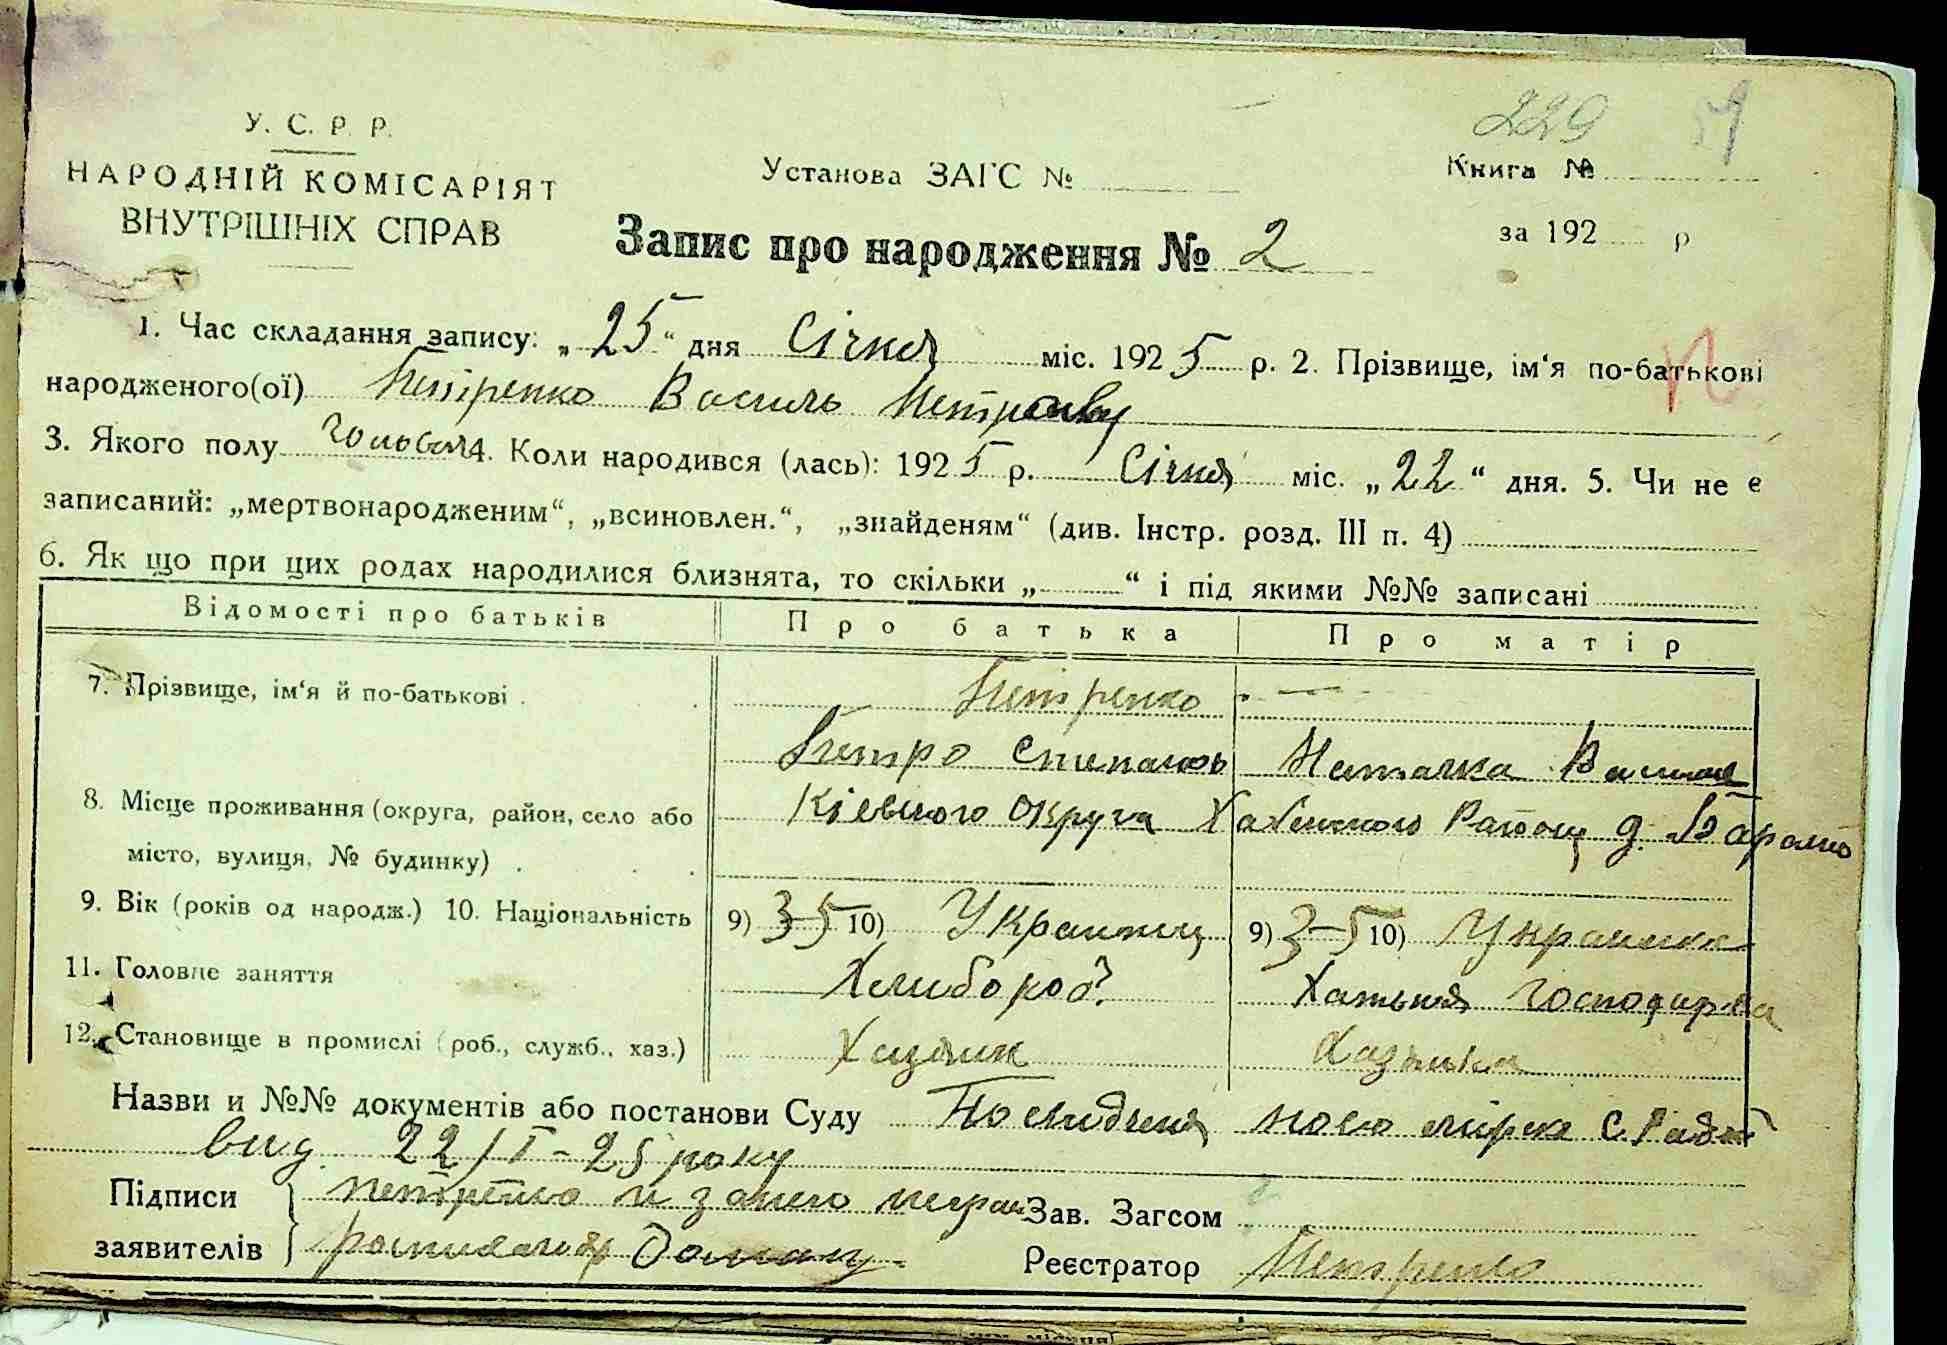 229 54
У. С. Р. Р.
НАРОДНІЙ КОМІСАРІЯТ
ВНУТРІШНІХ СПРАВ
Установа ЗАГС №
Книга №
за 192 р
Запис про народження № 2
1. Час складання запису: „25“ дня Січня міс. 1925 р. 2. Прізвище, ім‘я по-батькові
народженого(ої) Петренко Василь Петрович
3. Якого полу 4. Коли народився (лась): 1925 р. Січня міс. „22“ дня. 5. Чи не є
записаний: „мертвонародженим“, „всиновлен.“, „знайденям“ (див. Інстр. розд. III п. 4)
6. Як що при цих родах народилися близнята, то скільки „ “ і під якими №№ записані
Відомості про батьків Про батька Про матір
7. Прізвище, ім‘я й по-батькові Петренко —
Петро Наталка
8. Місце проживання (округа, район, село або Округа
місто, вулиця, № будинку)
9. Вік (років од народж.) 10. Національність 9) 35 10) Украинец 9) 35 10) Украинка
11. Головне заняття Хлибороб Хатьня господарка
12. Становище в промислі (роб., служб., хаз.) Хазяин Хазяика
Назви и №№ документів або постанови Суду
вид 22/I-25 року
Підписи
заявителів
Зав. Загсом
Реєстратор Петренко